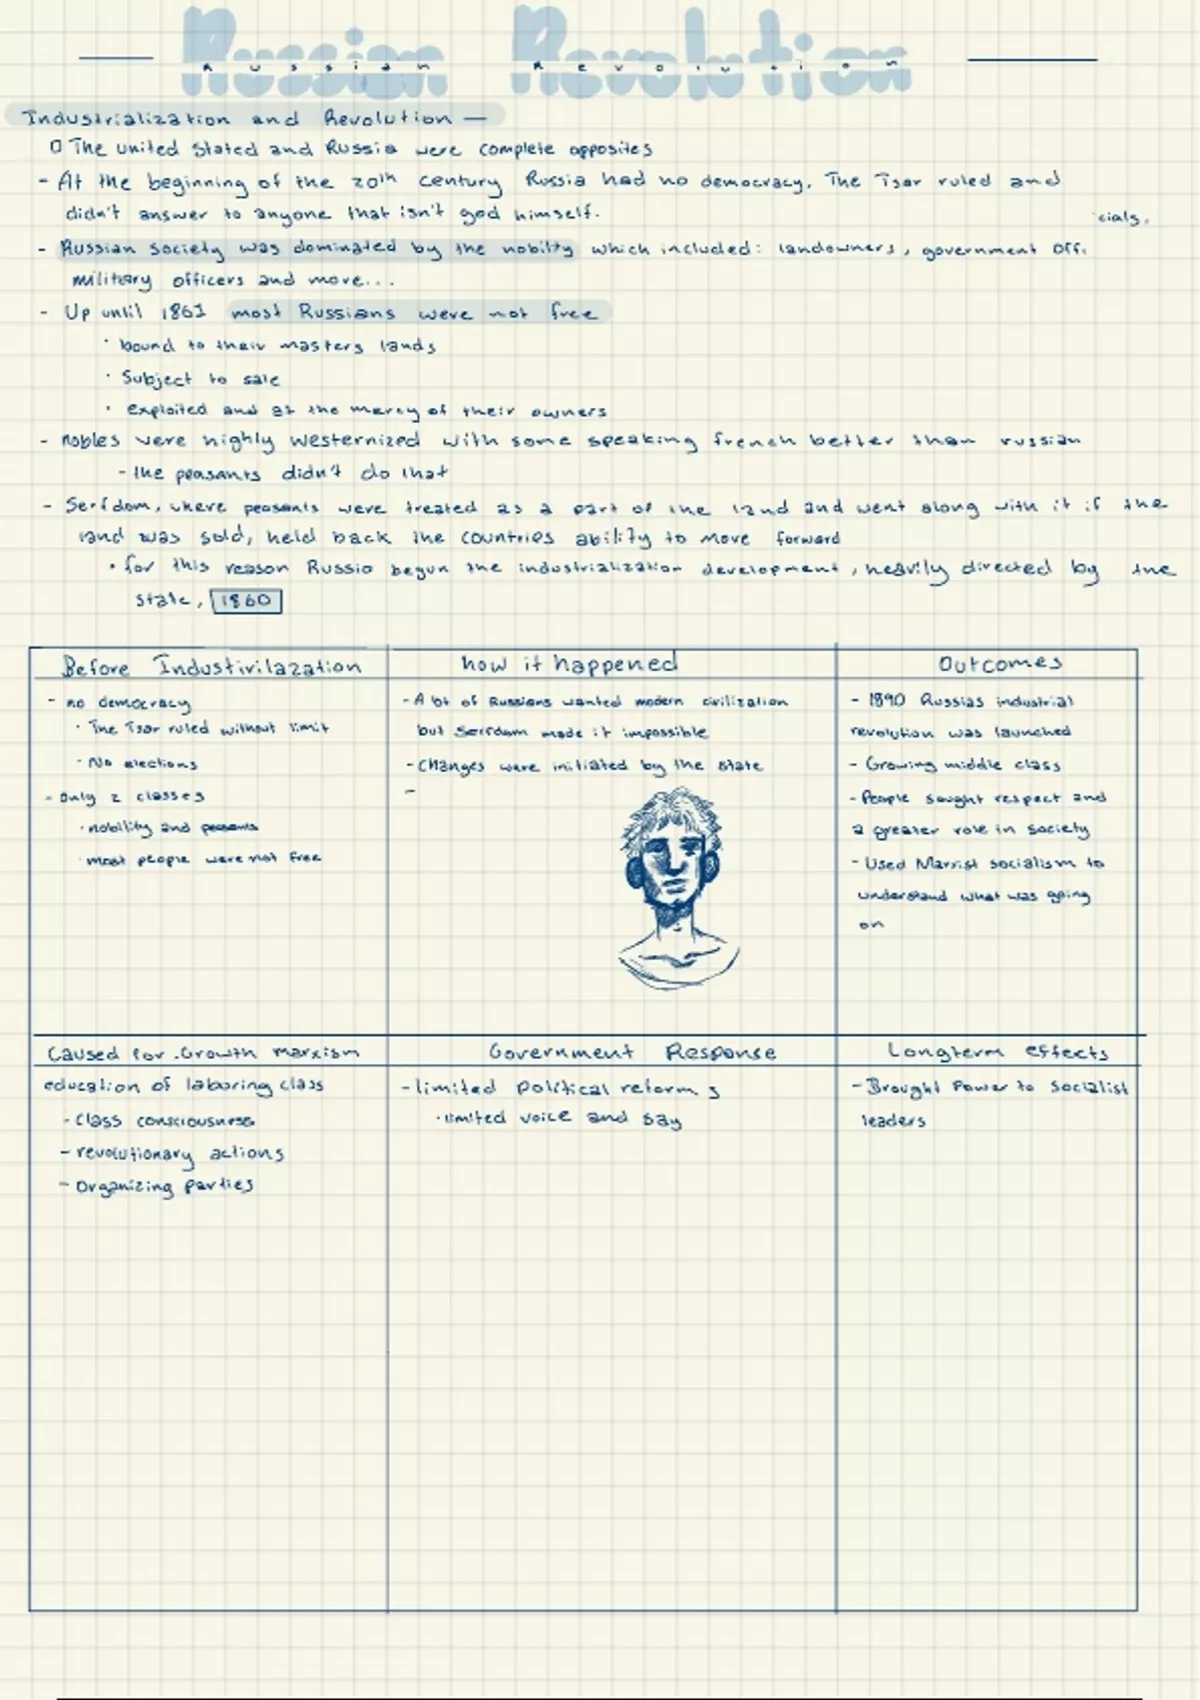 Russian Revolution
Russian Revolution
Industrialization and Revolution —
The united Stated and Russia were complete opposites
- At the beginning of the 20th century Russia had no democracy. The Tsar ruled and
didn't answer to anyone that isn't god himself.
- Russian society was dominated by the nobility which included: landowners, government officials,
military officers and more...
- Up until 1861 most Russians were not free
· bound to their masters lands
· Subject to sale
· exploited and at the mercy of their owners
- nobles were highly westernized with some speaking french better than russian
- the peasants didn't do that
- Serfdom, where peasants were treated as a part of the land and went along with it if the
land was sold, held back the countries ability to move forward
· for this reason Russia begun the industrialization development, heavily directed by the
state, 1860
Before Industirilazation
- no democracy
· The Tsar ruled without limit
· No elections
- Only 2 classes
· nobility and peasants
· most people were not free
how it happened
- A lot of Russians wanted modern civilization
but Serfdom made it impossible
- Changes were initiated by the state
-
Outcomes
- 1890 Russias industrial
revolution was launched
- Growing middle class
- People sought respect and
a greater role in society
- Used Marxist socialism to
understand what was going
on
Caused for Growth marxism
education of laboring class
- Class consciousness
- revolutionary actions
- Organizing parties
Government Response
- limited political reforms
· limited voice and say
Longterm effects
- Brought Power to Socialist
leaders